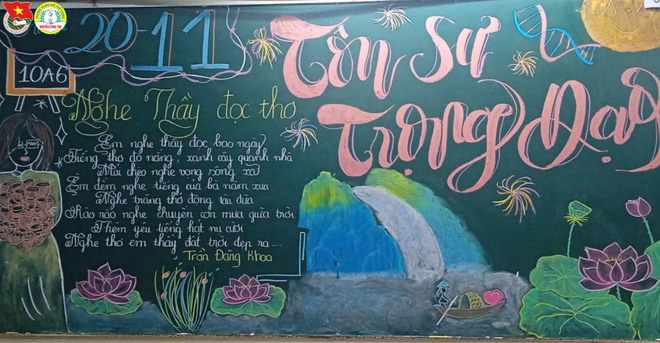 20-11
10A6
Tôn Sư
Trọng Đạo
Nghe Thầy đọc thơ
Em nghe thầy đọc bao ngày
Tiếng thơ đỏ nắng, xanh cây quanh nhà
Mái chèo nghe vọng sông xa
Êm đềm nghe tiếng của bà năm xưa
Nghe trăng thở động tàu dừa
Rào rào nghe chuyển cơn mưa giữa trời
Thêm yêu tiếng hát nụ cười
Nghe thơ em thấy đất trời đẹp ra....
Trần Đăng Khoa